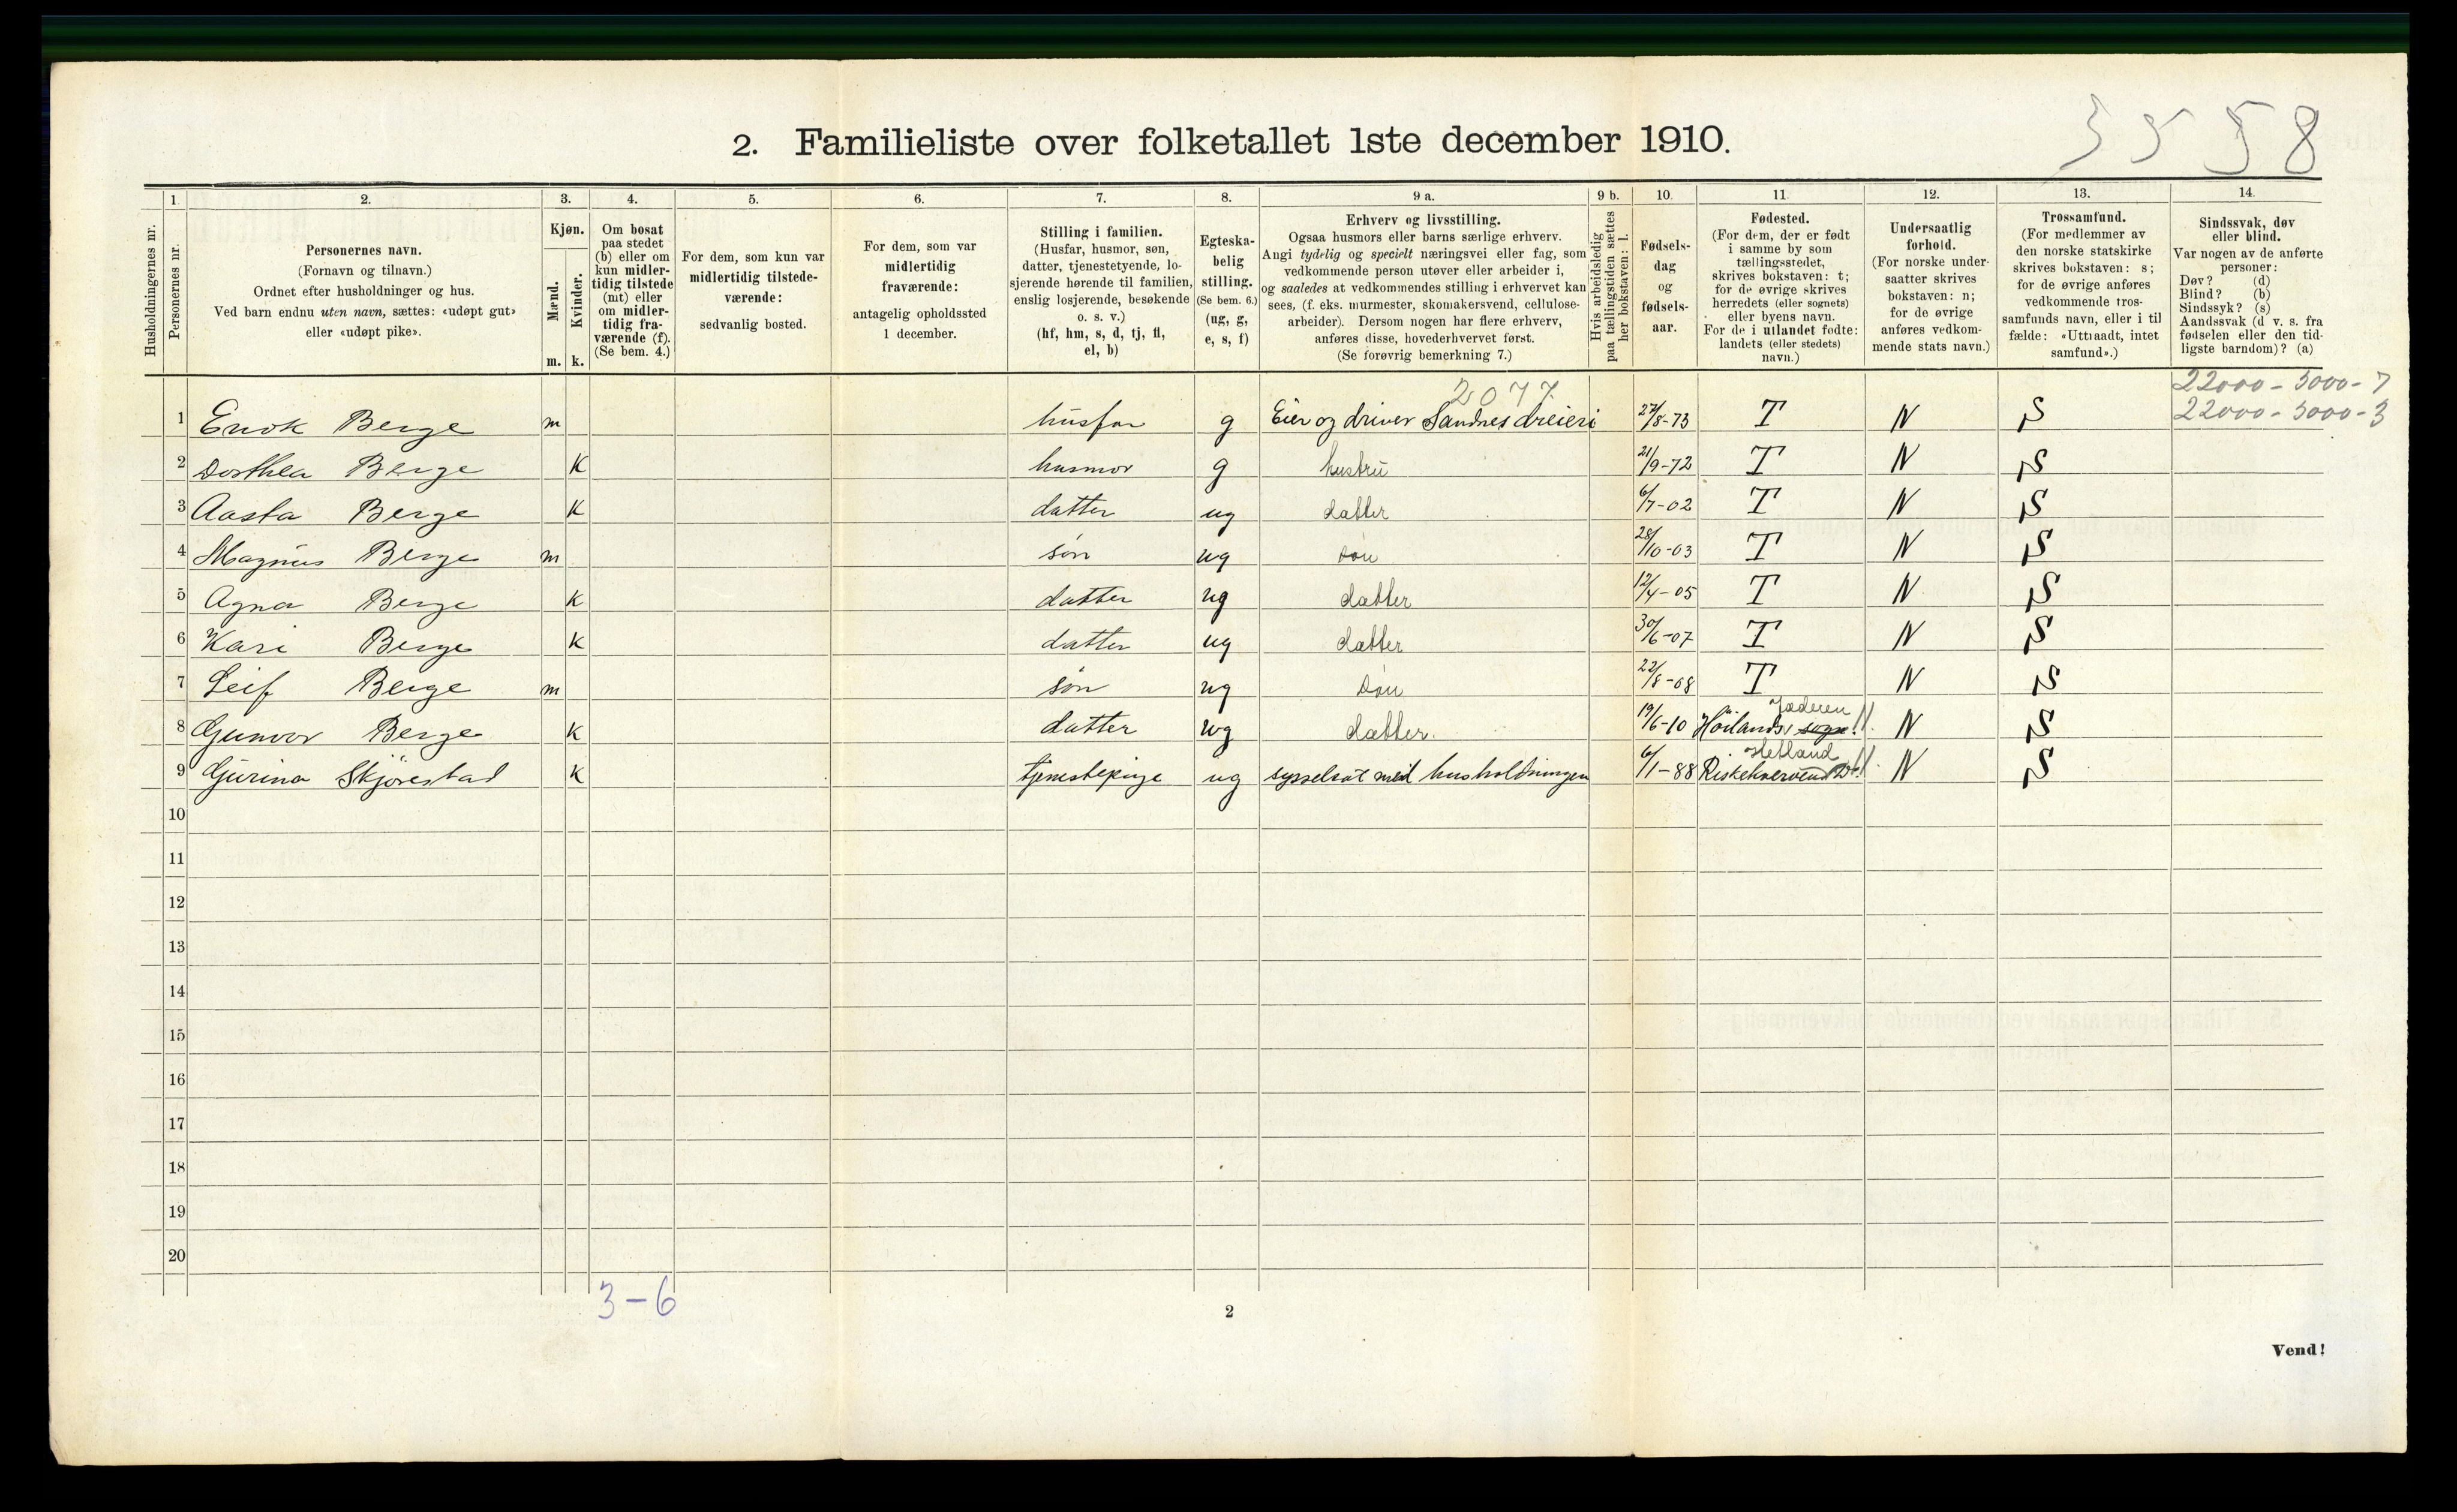 3 5 5 8
2. Familieliste over folketallet 1ste december 1910.
1. 2. 3. 4. 5. 6. 7. 8. 9 a. 9 b. 10. 11. 12. 13. 14.
Husholdningernes nr.
Personernes nr.
Personernes navn.
(Fornavn og tilnavn.)
Ordnet efter husholdninger og hus.
Ved barn endnu uten navn, sættes: «udøpt gut»
eller «udøpt pike».
Kjøn.
Mænd.
Kvinder.
m. k.
Om bosat
paa stedet
(b) eller om
kun midler-
tidig tilstede
(mt) eller
om midler-
tidig fra-
værende (f).
(Se bem. 4.)
For dem, som kun var
midlertidig tilstede-
værende:
sedvanlig bosted.
For dem, som var
midlertidig
fraværende:
antagelig opholdssted
1 december.
Stilling i familien.
(Husfar, husmor, søn,
datter, tjenestetyende, lo-
sjerende hørende til familien,
enslig losjerende, besøkende
o. s. v.)
(hf, hm, s, d, tj, fl,
el, b)
Egteska-
belig
stilling.
(Se bem. 6.)
(ug, g,
e, s, f)
Erhverv og livsstilling.
Ogsaa husmors eller barns særlige erhverv.
Angi tydelig og specielt næringsvei eller fag, som
vedkommende person utøver eller arbeider i,
og saaledes at vedkommendes stilling i erhvervet kan
sees, (f. eks. murmester, skomakersvend, cellulose-
arbeider). Dersom nogen har flere erhverv,
anføres disse, hovederhvervet først.
(Se forøvrig bemerkning 7.)
Hvis arbeidsledig
paa tællingstiden sættes
her bokstaven: l.
Fødsels-
dag
og
fødsels-
aar.
Fødested.
(For dem, der er født
i samme by som
tællingsstedet,
skrives bokstaven: t;
for de øvrige skrives
herredets (eller sognets)
eller byens navn.
For de i utlandet fødte:
landets (eller stedets)
navn.)
Undersaatlig
forhold.
(For norske under-
saatter skrives
bokstaven: n;
for de øvrige
anføres vedkom-
mende stats navn.)
Trossamfund.
(For medlemmer av
den norske statskirke
skrives bokstaven: s;
for de øvrige anføres
vedkommende tros-
samfunds navn, eller i til
fælde: «Uttraadt, intet
samfund».)
Sindssvak, døv
eller blind.
Var nogen av de anførte
personer:
Døv? (d)
Blind? (b)
Sindssyk? (s)
Aandssvak (d v. s. fra
fødselen eller den tid-
ligste barndom)? (a)
2077 22000 - 5000 - 7
22000 - 5000 - 3
1 Enok Berge m husfar g Eier og driver Sandnes dreieri 27/8-73 T N S
2 Dorthea Berge K husmor g hustru 21/9-72 T N S
3 Aasta Berge K datter ug datter 6/7-02 T N S
4 Magnus Berge m søn ug søn 28/10-03 T N S
5 Agna Berge K datter ug datter 12/4-05 T N S
6 Kari Berge K datter ug datter 30/6-07 T N S
7 Leif Berge m søn ug søn 22/8-08 T N S
Jæderen
8 Gunvor Berge K datter ug datter. 19/6-10 Höilands sogn! N S
Hetland
9 Gurina Skjörestad K tjenestepige ug sysselsat med husholdningen 6/1-88 N S
10
11
12
13
14
15
16
17
18
19
20
3-6
2
Vend!